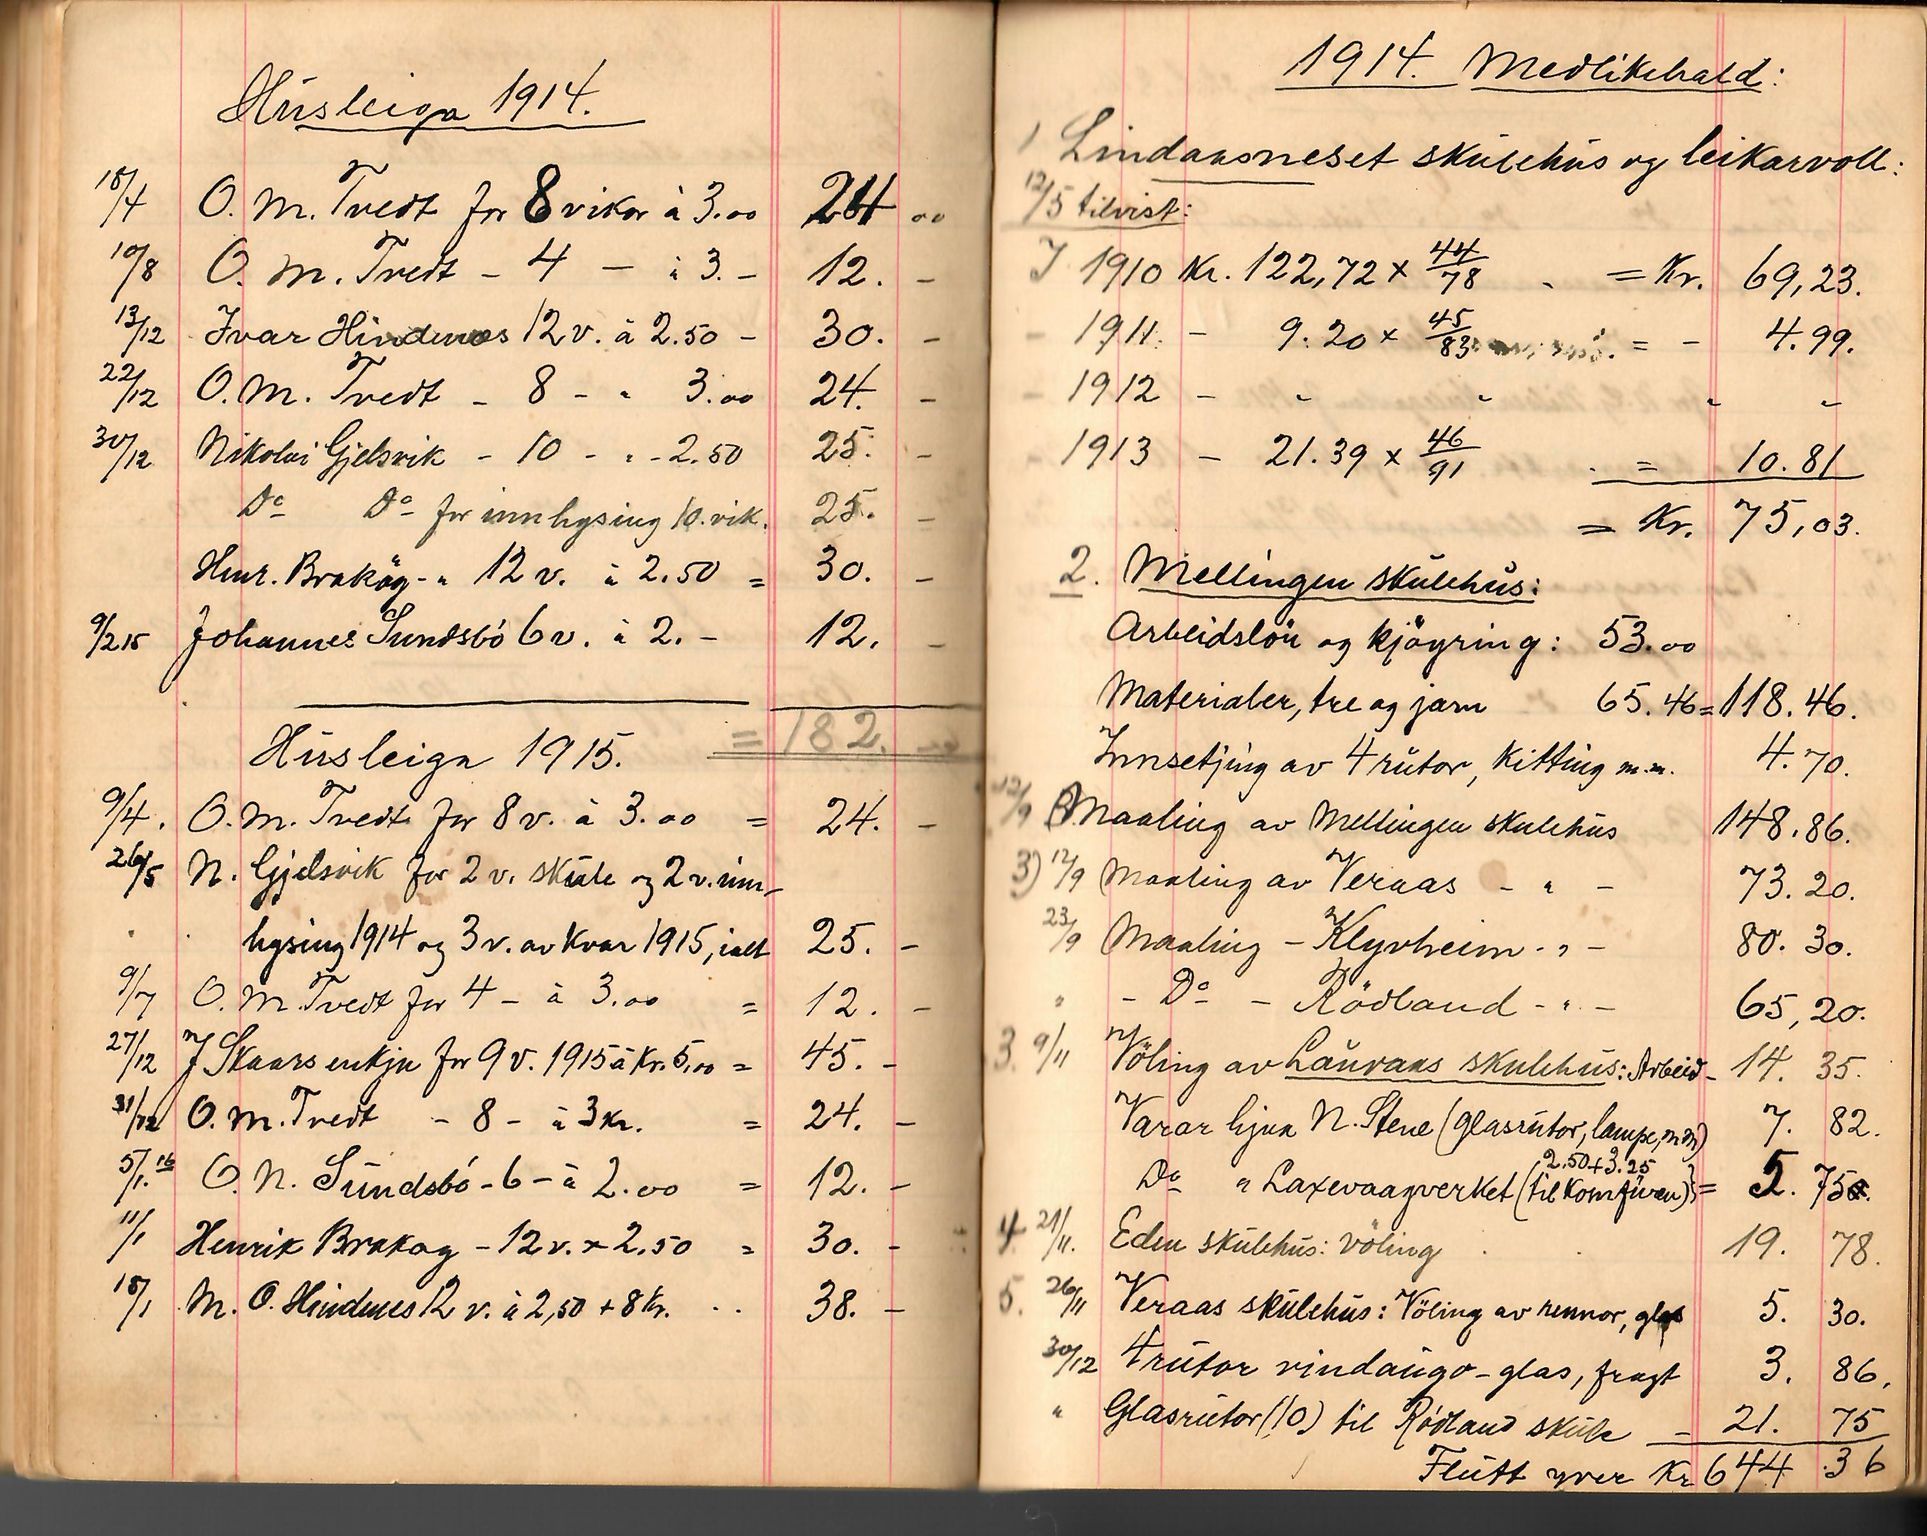 Husleiga 1914.
18/4 O. M. Tvedt for 8 vikor à 3.00 24 00
10/8 O. M. Tvedt - 4 - à 3. - 12. -
13/12 Ivar Hindenes 12 v. à 2.50 - 30. -
22/12 O. M. Tvedt - 8 - " 3.00 24. -
30/12 Nikolai Gjelsvik - 10 - " - 2.50 25. -
Do Do for innhysing 10. vik. 25. -
Henr. Brakøy - " 12 v. à 2.50 = 30. -
9/2 15 Johannes Sundsbö 6 v. à 2. - 12. -
= 182. -
Husleiga 1915.
9/4. O. M. Tvedt for 8 v. à 3.00 = 24. -
26/5 N. Gjelsvik for 2 v. skule og 2 v. inn-
hysing 1914 og 3 v. av kvar 1915, ialt 25. -
9/7 O. M. Tvedt for 4 - à 3.00 = 12. -
27/12 J Skaars enkja for 9 v. 1915 à Kr. 5,00 = 45. -
31/12 O. M. Tvedt - 8 - à 3 kr. = 24. -
5/1. 16 O. N. Sundsbö - 6 - à 2.00 = 12. -
11/1 Henrik Brakøy - 12 v. x 2.50 = 30. -
18/1 M. O. Hindenes 12 v. à 2,50 + 8 Kr. .. 38. -
1914. Medlikehald:
1 Lindaasneset skulehus og leikarvoll:
12/5 tilvist:
I 1910 Kr. 122,72 x 44/78 = Kr. 69,23.
- 1911. - 9.20 x 45/83 = - 4.99.
- 1912 - " " " "
- 1913 - 21.39 x 46/91 = 10.81
= Kr. 75,03.
2. Mellingen skulehus:
Arbeidslön og kjöyring: 53.00
Materialer, tre og jarn 65.46 = 118.46.
Innsetjing av 4 rutor, kitting m.m. 4.70.
12/9 Maaling av Mellingen skulehus 148.86.
3) 12/9 Maaling av Veraas - " - 73.20.
23/9 Maaling - Klyvheim - " - 80.30.
" - Do - Rödland - " - 65,20.
3. 9/11 Völing av Lauraas skulehus: Arbeid - 14. 35.
Varor hjaa N. Stene (glasrutor, lampe, mm) 7. 82.
2.50+3.25
Do " Laxevaagverket (til komfüren) = 5. 75.
4. 21/11. Eden skulehus: völing 19. 78.
5. 26/11 Veraas skulehus: Völing av rennor, glas 5. 30.
30/12 4 rutor vindaugo-glas, fragt 3. 86.
" Glasrutor (10) til Rödland skule - 21. 75
Flutt yver Kr 644 .36